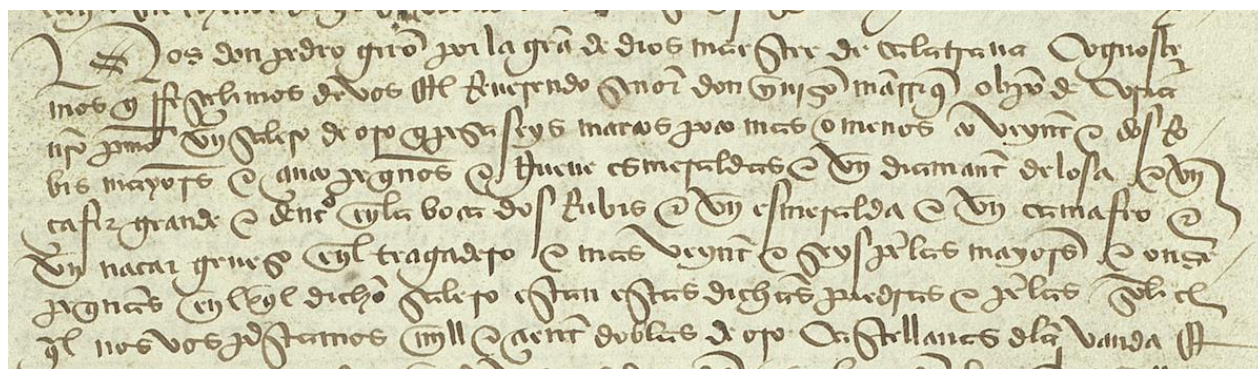 Nos don pedro giro por la gra de dios maestre de calatraua Cognosce
mos q rresçebimos de vos el Reuerendo señor don yñigo manrriq obpo de Coria
nro pmo vn salero de oro q pesa seys marcos poco mas o menos co veynt e dos Ro
bis mayors e çinco peqnos e nueue esmeraldas e vn diamant de losa e vn
çafir grande e dent enla boca dos Rubis e vn esmeralda e vn camafeo e
vn nacar grueso enl tragadero e mas veynt e seys perlas mayors e onze
peqnas enl ql dicho salero estan estas dichas piedras e perlas sobre el
ql nos vos prestamos mill e çient doblas de oro Castellanas dla vanda